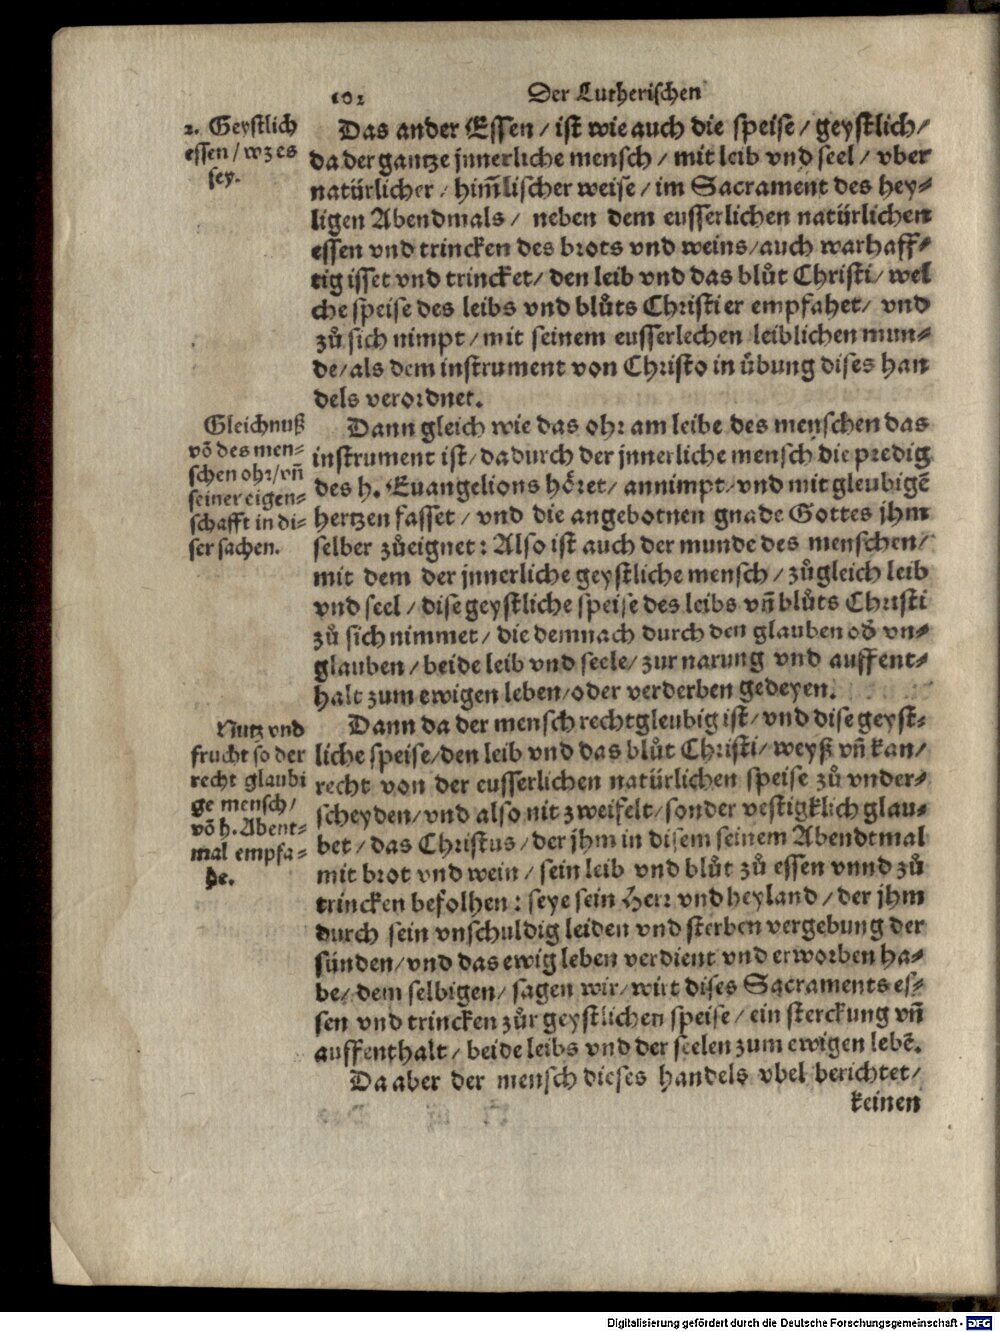 102
Der Lutherischen
2. Geystlich
essen / wz es
sey.
Das ander Essen / ist wie auch die speise / geystlich /
da der gantze jnnerliche mensch / mit leib vnd seel / vber
natürlicher / him̃lischer weise / im Sacrament des hey⸗
ligen Abendmals / neben dem eusserlichen natürlichen
essen vnd trincken des brots vnd weins / auch warhaff⸗
tig isset vnd trincket / den leib vnd das blůt Christi / wel
che speise des leibs vnd blůts Christi er empfahet / vnd
zů sich nimpt / mit seinem eusserlechen leiblichen mun⸗
de / als dem instrument von Christo in übung dises han
dels verordnet.
Gleichnuß
võ des men⸗
schen ohr / vñ
seiner eigen⸗
schafft in di⸗
ser sachen.
Dann gleich wie das ohr am leibe des menschen das
instrument ist / dadurch der jnnerliche mensch die predig
des h. Euangelions hôret / annimpt / vnd mit gleubigẽ
hertzen fasset / vnd die angebotnen gnade Gottes jhm
selber zůeignet : Also ist auch der munde des menschen /
mit dem der jnnerliche geystliche mensch / zůgleich leib
vnd seel / dise geystliche speise des leibs vñ blůts Christi
zů sich nimmet / die demnach durch den glauben od̕ vn⸗
glauben / beide leib vnd seele / zur narung vnd auffent⸗
halt zum ewigen leben / oder verderben gedeyen.
Nutz vnd
frucht so der
recht glaubi
ge mensch /
võ h. Abent⸗
mal empfa⸗
he.
Dann da der mensch rechtgleubig ist / vnd dise geyst⸗
liche speise / den leib vnd das blůt Christi / weyß vñ kan /
recht von der eusserlichen natürlichen speise zů vnder⸗
scheyden / vnd also nit zweifelt / sonder vestigklich glau⸗
bet / das Christus / der jhm in disem seinem Abendtmal
mit brot vnd wein / sein leib vnd blůt zů essen vnnd zů
trincken befolhen : seye sein Herr vnd heyland / der jhm
durch sein vnschuldig leiden vnd sterben vergebung der
sünden / vnd das ewig leben verdient vnd erworben ha⸗
be / dem selbigen / sagen wir / wirt dises Sacraments es⸗
sen vnd trincken zůr geystlichen speise / ein sterckung vñ
auffenthalt / beide leibs vnd der seelen zum ewigen lebẽ.
Da aber der mensch dieses handels vbel berichtet /
keinen
Digitalisierung gefördert durch die Deutsche Forschungsgemeinschaft - DFG